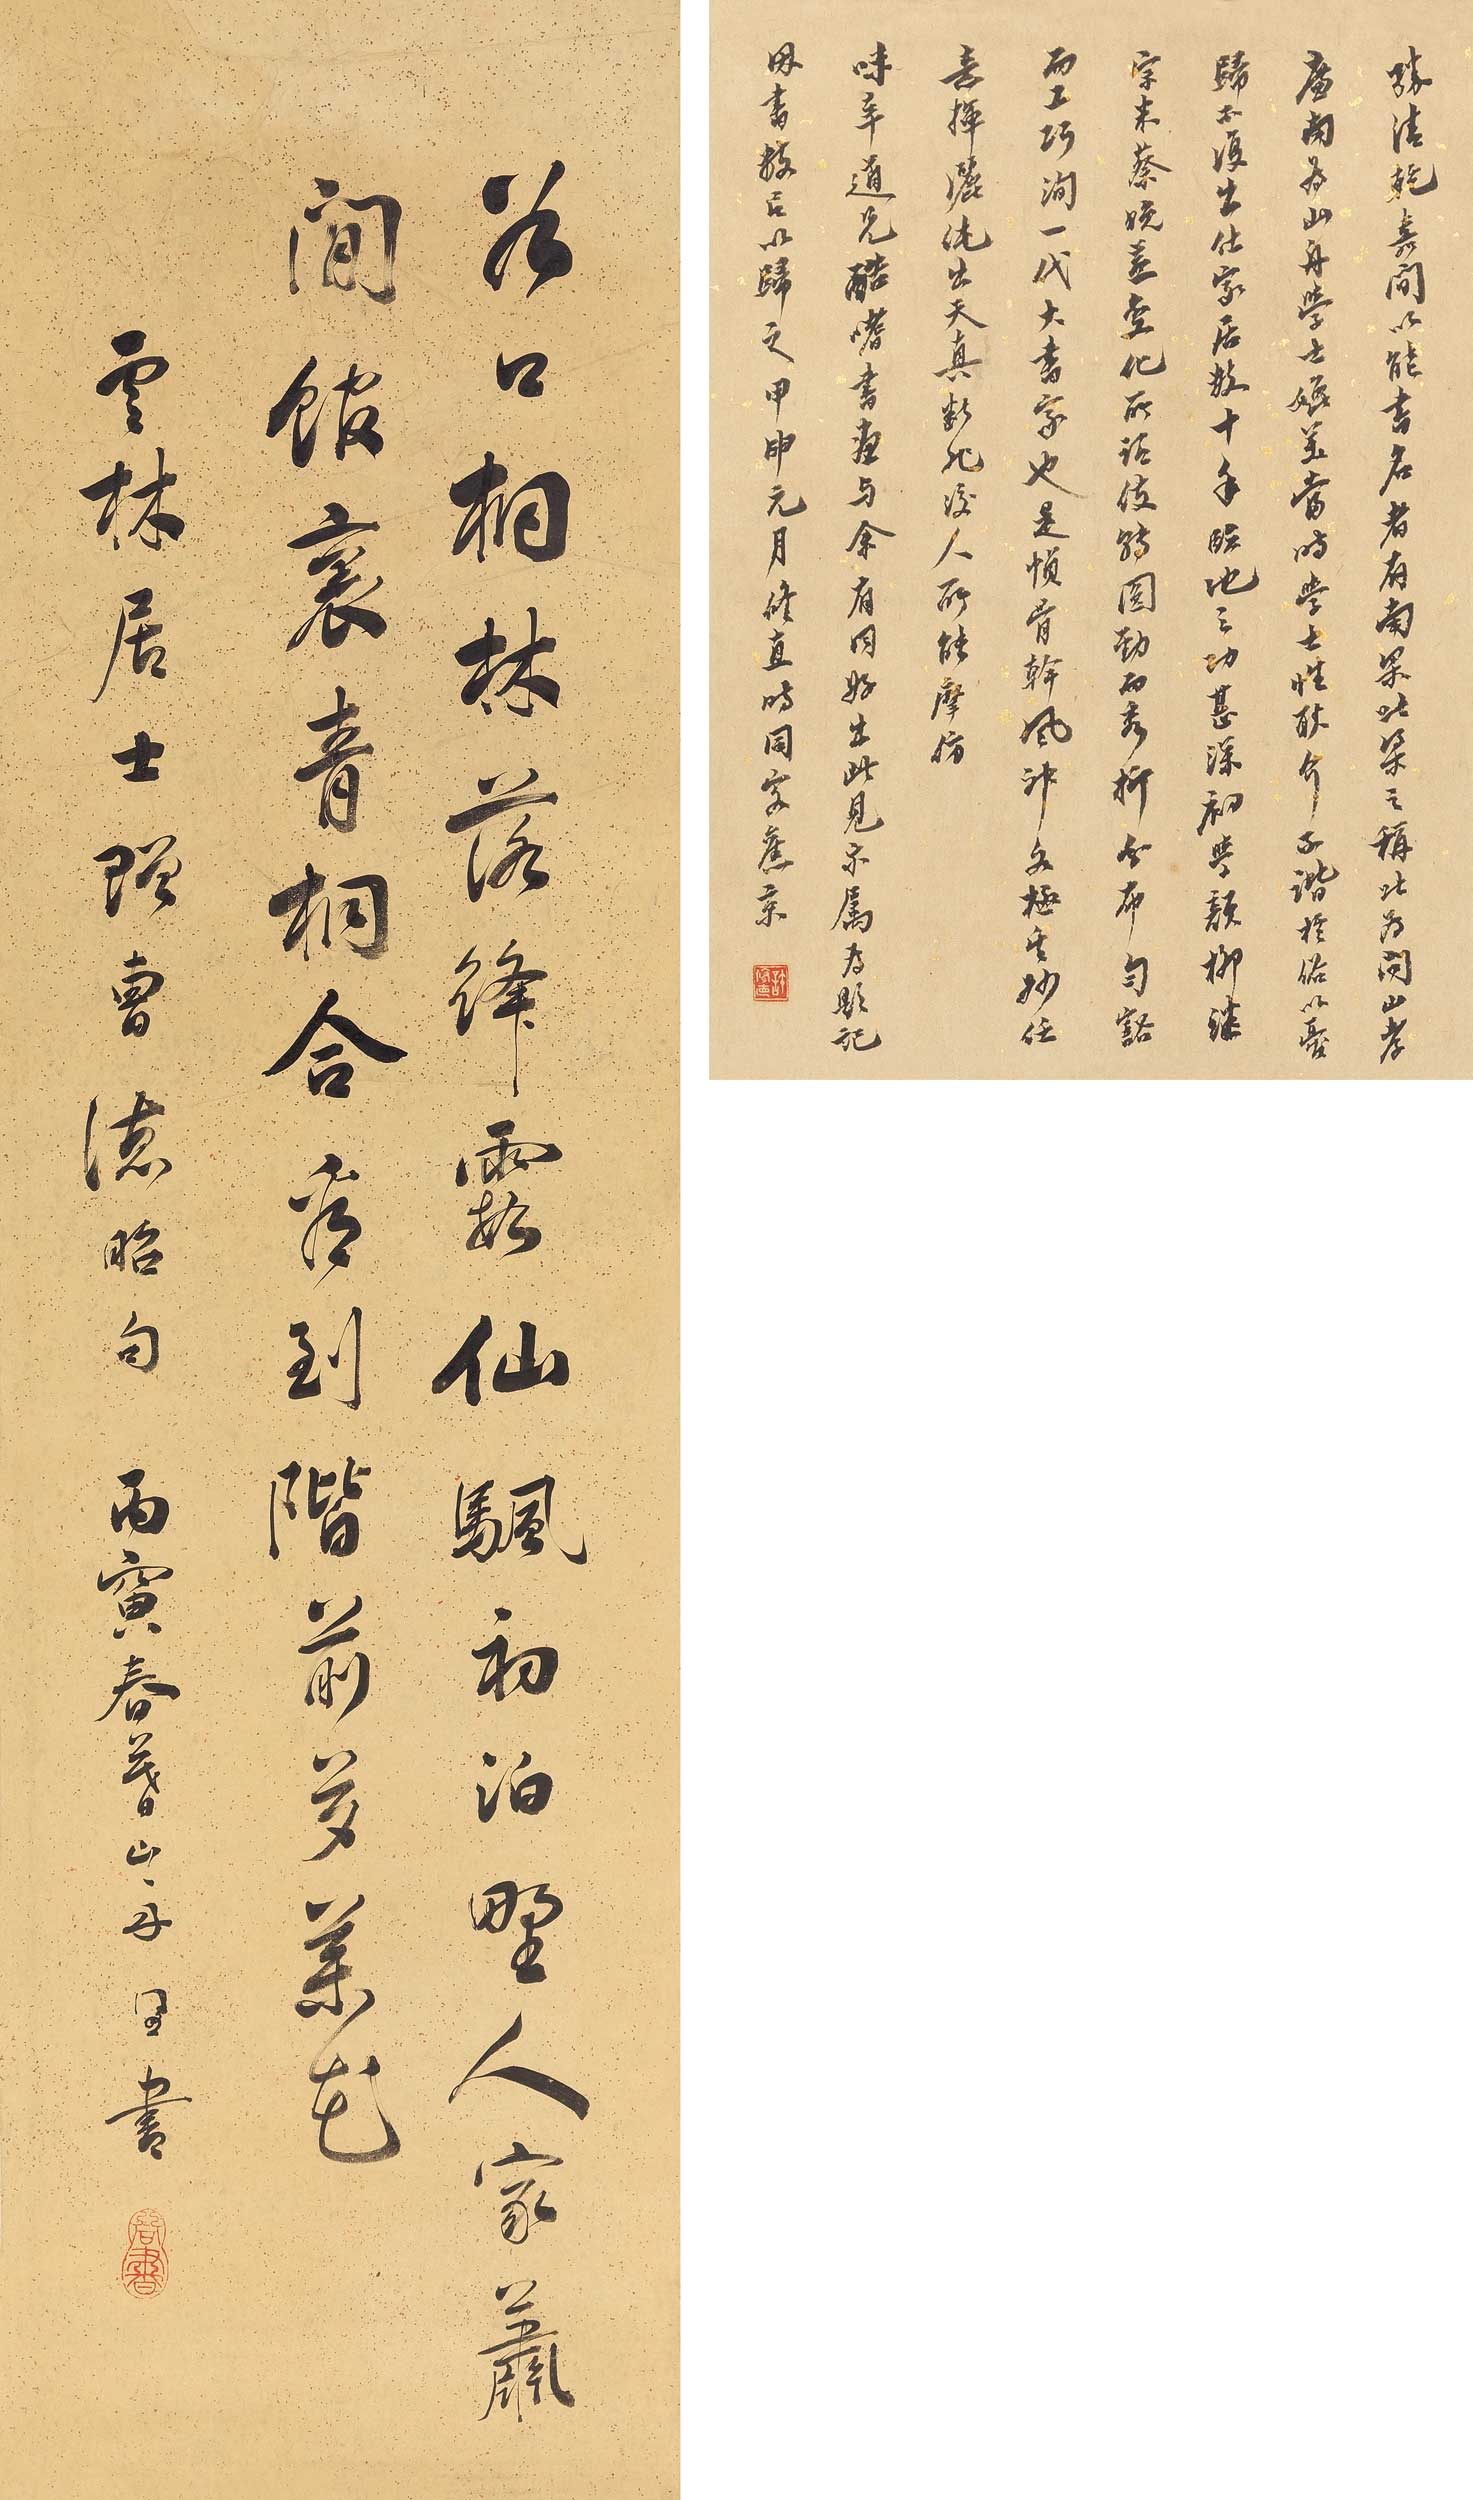 谷口桐林落絳霞仙颿初泊野人家蕭
閒館裏青桐合看到階前葉花
雲林居士贈曹德昭句 丙寅春暮山舟同書
勝清乾嘉間以能書名者有南梁北梁之稱北為聞山孝
廉南為山舟學士媲美當時學士性耿介不諧於俗以憂
歸不復出仕家居數十年臨池之功甚深初學顏柳繼
宗米蔡晚益變化所詣使轉圓勁而秀折分布勻豁
而工巧洵一代大書家也是幀骨幹風神各極其妙任
意揮灑純出天真斷非後人所能摩仿
味辛道兄酷嗜書畫与余有同好出此見示属為題記
因書數以歸之甲申元月修直時同客舊京